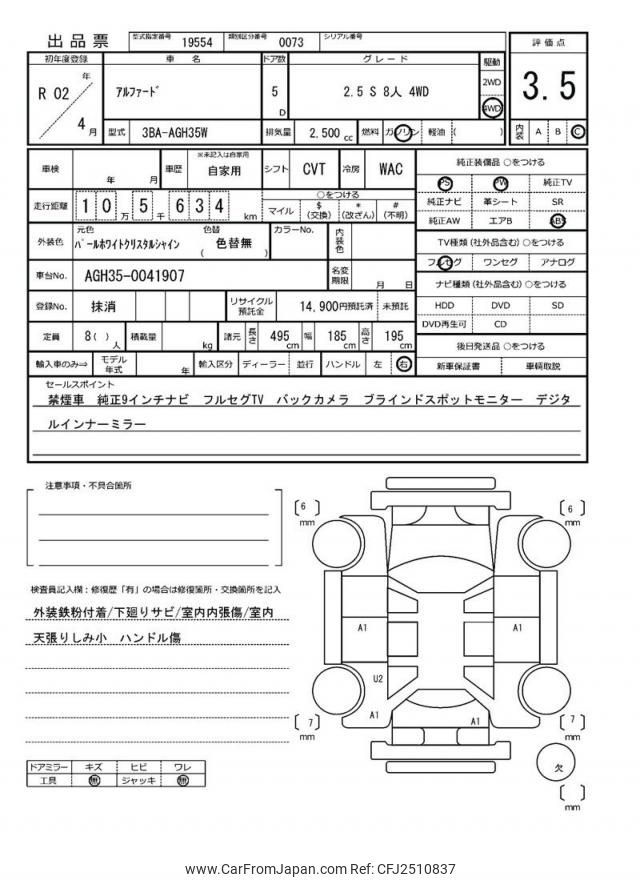 出品票 型式指定番号 19554 類別区分番号 0073 シリアル番号
初年度登録 車名 ドア数 グレード 駆動 評価点
R 02 年 4 月 アルファード 5 D 2.5 S 8人 4WD 2WD 4WD 3.5
型式 3BA-AGH35W 排気量 2,500 cc 燃料 ガソリン 軽油 ( ) 内装 A B C
車検 年 月 車歴 ※未記入は自家用 自家用 シフト CVT 冷房 WAC 純正装備品 ○をつける
PS PW 純正TV
走行距離 1 0 万 5 千 6 3 4 km ○をつける マイル $ (交換) * (改ざん) # (不明) 純正ナビ 革シート SR
純正AW エアB ABS
外装色 元色 パールホワイトクリスタルシャイン 色替 ( 色替無 ) カラーNo. 内装色 TV種類 (社外品含む) ○をつける
フルセグ ワンセグ アナログ
車台No. AGH35-0041907 名変期限 月 日 ナビ種類 (社外品含む) ○をつける
登録No. 抹消 リサイクル預託金 14,900円預託済 未預託 HDD DVD SD
DVD再生可 CD
定員 8( ) 人 積載量 kg 諸元 長さ 495 cm 幅 185 cm 高さ 195 cm 後日発送品 ○をつける
輸入車のみ⇒ モデル年式 年 輸入区分 ディーラー 並行 ハンドル 左 右 新車保証書 車輌取説
セールスポイント
禁煙車 純正9インチナビ フルセグTV バックカメラ ブラインドスポットモニター デジタ
ルインナーミラー
注意事項・不具合箇所
検査員記入欄：修復歴「有」の場合は修復箇所・交換箇所を記入
外装鉄粉付着/下廻りサビ/室内内張傷/室内
天張りしみ小 ハンドル傷
ドアミラー キズ ヒビ ワレ
工具 無 ジャッキ 無
[ 6 ] mm
[ 6 ] mm
A1
A1
U2
A1
A1
[ 7 ] mm
[ 7 ] mm
欠
[ ] mm
www.CarFromJapan.com Ref: CFJ2510837